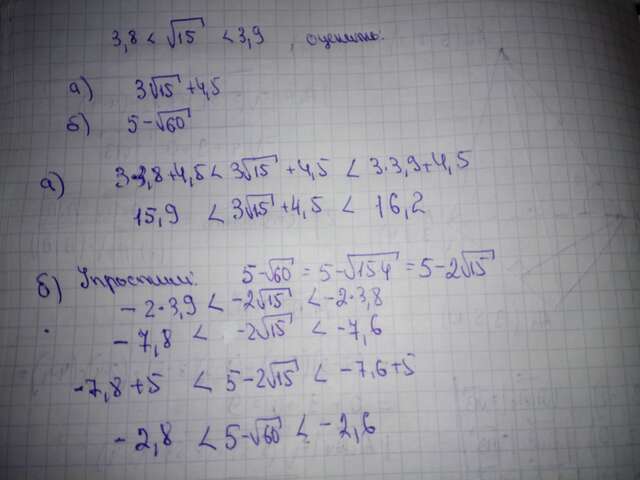 3,8 < √15 < 3,9, оценить:
а) 3√15 + 4,5
б) 5-√60
а) 3·3,8+4,5 < 3√15 + 4,5 < 3·3,9+4,5
15,9 < 3√15 + 4,5 < 16,2
б) Упростим: 5-√60 = 5-√15·4 = 5-2√15
-2·3,9 < -2√15 < -2·3,8
-7,8 < -2√15 < -7,6
-7,8+5 < 5-2√15 < -7,6+5
-2,8 < 5-√60 < -2,6